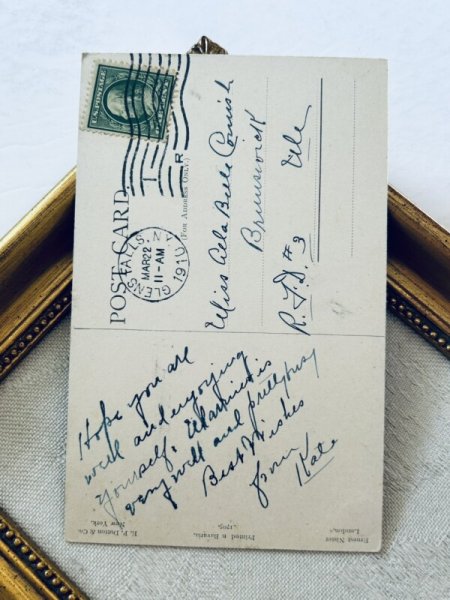 POST CARD
(For Address Only.)
GLENS FALLS N.Y.
MAR 22
11-AM
1910
Miss Belle Cornish
Brunswick
Me
R.F.D. # 3
Hope you are
well and enjoying
yourself. is
very well and pretty busy
Best Wishes
from
Kate
E. P. Dutton & Co
New York.
Printed in Bavaria.
Ernest Nister
London.